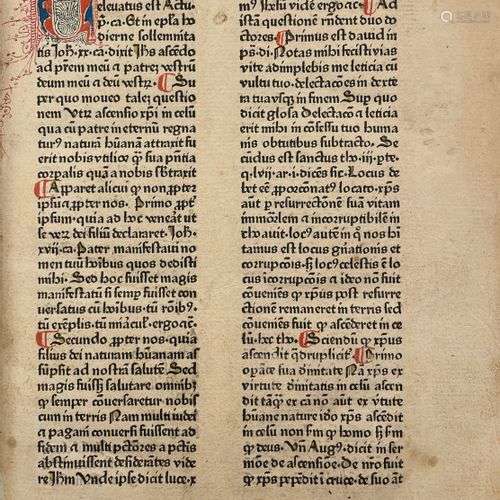 Eleuatus est Actuū
p̄ca·Et in ep̄sa ho
dierne sollemnita
tis Joh·xx·ca·dixit Ih̄s ascēdo
ad p̄rem meū ⁊ patrez vestrū
deum meū ⁊ deū vestrū· Su
per quo moueo talez questio
nem Vtrū ascensio xp̄i in celū
qua cū patre in eternū regna
tur⁹ naturā hūanā attraxit fu
erit nobis vtilior q̄ sua p̄ntia
corpalis quam a nobis sbtraxit
Apparet alicui q̄ non ꝓpter
ipsū ⁊ ꝓpter nos· Primo ꝓpt̄
ipsum·quia ad hoc veneāt vt
se verū dei filiū declararet·Joh·
xvij·ca·Pater manifestaui no
men tuū hōibus quos dedisti
mihi· Sed hoc fuisset magis
manifestatū si semꝑ fuisset con
uersatus cū hōibus·tū rōib⁹·
tū exēplis·tū miācul·ergo ⁊c·
Secundo ꝓpter nos·quia
filius dei naturam hūanam as
sūpsit ad nostrā salutē· Sed
magis fuiss̄ salutare omnib⁹
q̄ semper cōuersaretur nobis
cum in terris Nam multi iudei
⁊ pagani conuersi fuissent ad
fidem ⁊ multi pctōres a pctis
abstinuissent desiderātes vide
re Ih̄m Vnde ipse dicit luce·x
m⁹ Ih̄m vide ergo ⁊c· Ad
istā questionē rn̄dent duo do
ctores· Primus est dauid in
ps̄·di·Notas mihi fecisti vias
vite adimplebis me leticia cū
vultu tuo·delectacōes in dexte
ra tua vsq̄ in finem Suꝑ quo
dicit glosa Delectacō ⁊ leticia
erit mihi in cōsessu tuo huma
nis obtutibus subtracto· Se
cūdus est sanctus tho·iij·pte·
q·lvij·ar·i·dicēs sic· Locus de
bet eē ꝓporcōnat⁹ locato·xp̄s
aūt p̄ resurrectōnē suā vitam
īmortlem ⁊ īcorruptibilē in
choauit·loc⁹ autē in q̄ nos hi
tamus est locus gn̄ationis et
corrupcōis·sꝫ loc⁹ celestis ē lo
cus īcorrupcōis ⁊ ideo nō fuit
cōueniēs q̄ xp̄us post resurre
ctionem remaneret in terris sed
cōueniēs fuit q̄ ascēderet in ce
lū·hec tho· Sciendū q̄ xp̄us
ascendit q̄drupliciť· Primo
oꝑante sua diuinitate Na xp̄s ex
virtute diuinitatis in celū ascen
dit tāq̄ꝫ ex cā nō aūt ex v̄tute
hūane nature ido xp̄s ascēdit
in celū non ẜm q̄ homo sꝫ ẜm
q̄ deus·Vn̄ Aug⁹·dicit in ser
mōe de ascenſiōe·De nr̄o fuit
q̄ xp̄s pepēdit ī cruce·de suo aūt